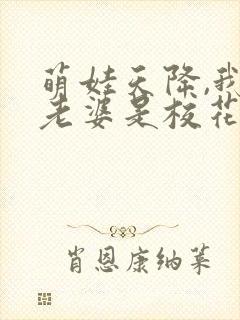 萌娃天降,我
老婆是校花
肖恩康纳莱